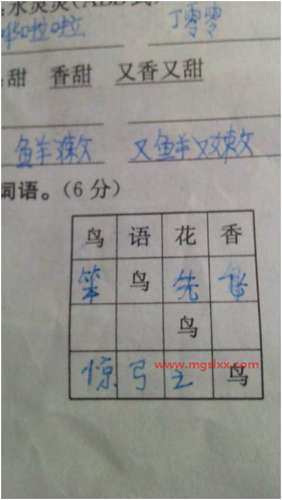 水灵灵(ABB式
啦啦 丁零零
甜 香甜 又香又甜
鲜嫩 又鲜又嫩
词语。(6分)
鸟 语 花 香
笨 鸟 先 飞
鸟
惊 弓 之 鸟
www.mgslxx.com